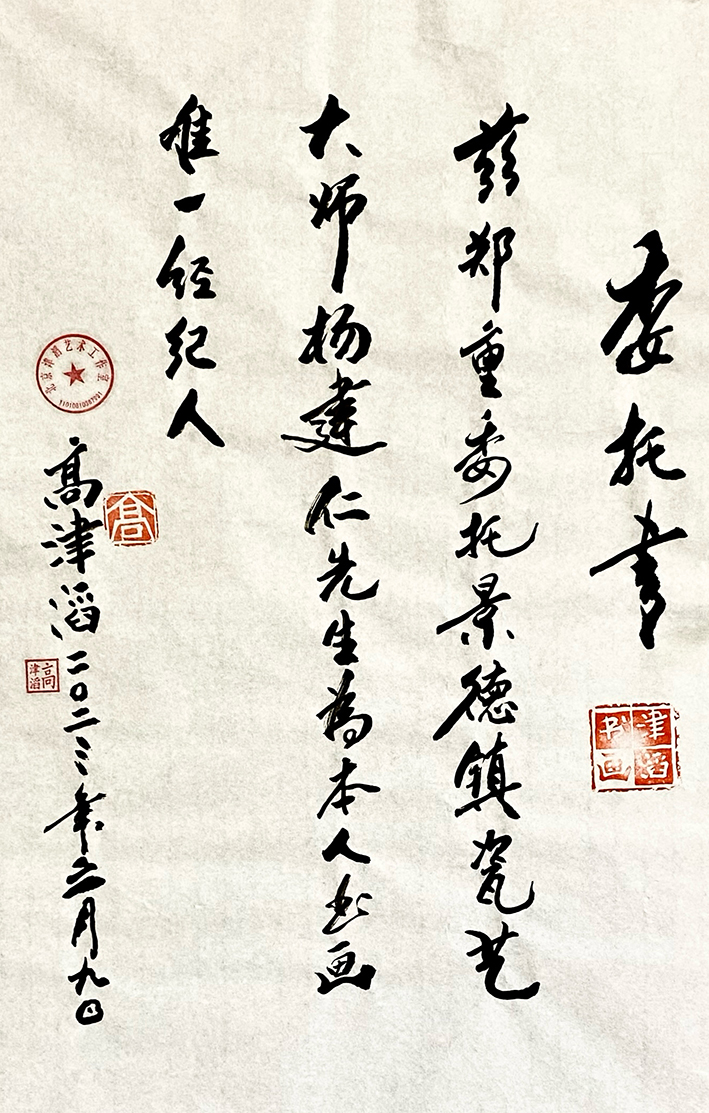 委托书
兹郑重委托景德镇瓷艺
大师杨建仁先生为本人书画
唯一经纪人
高津滔二〇二三年六月九日
津滔书画
北京津滔艺术工作室
高
高津滔